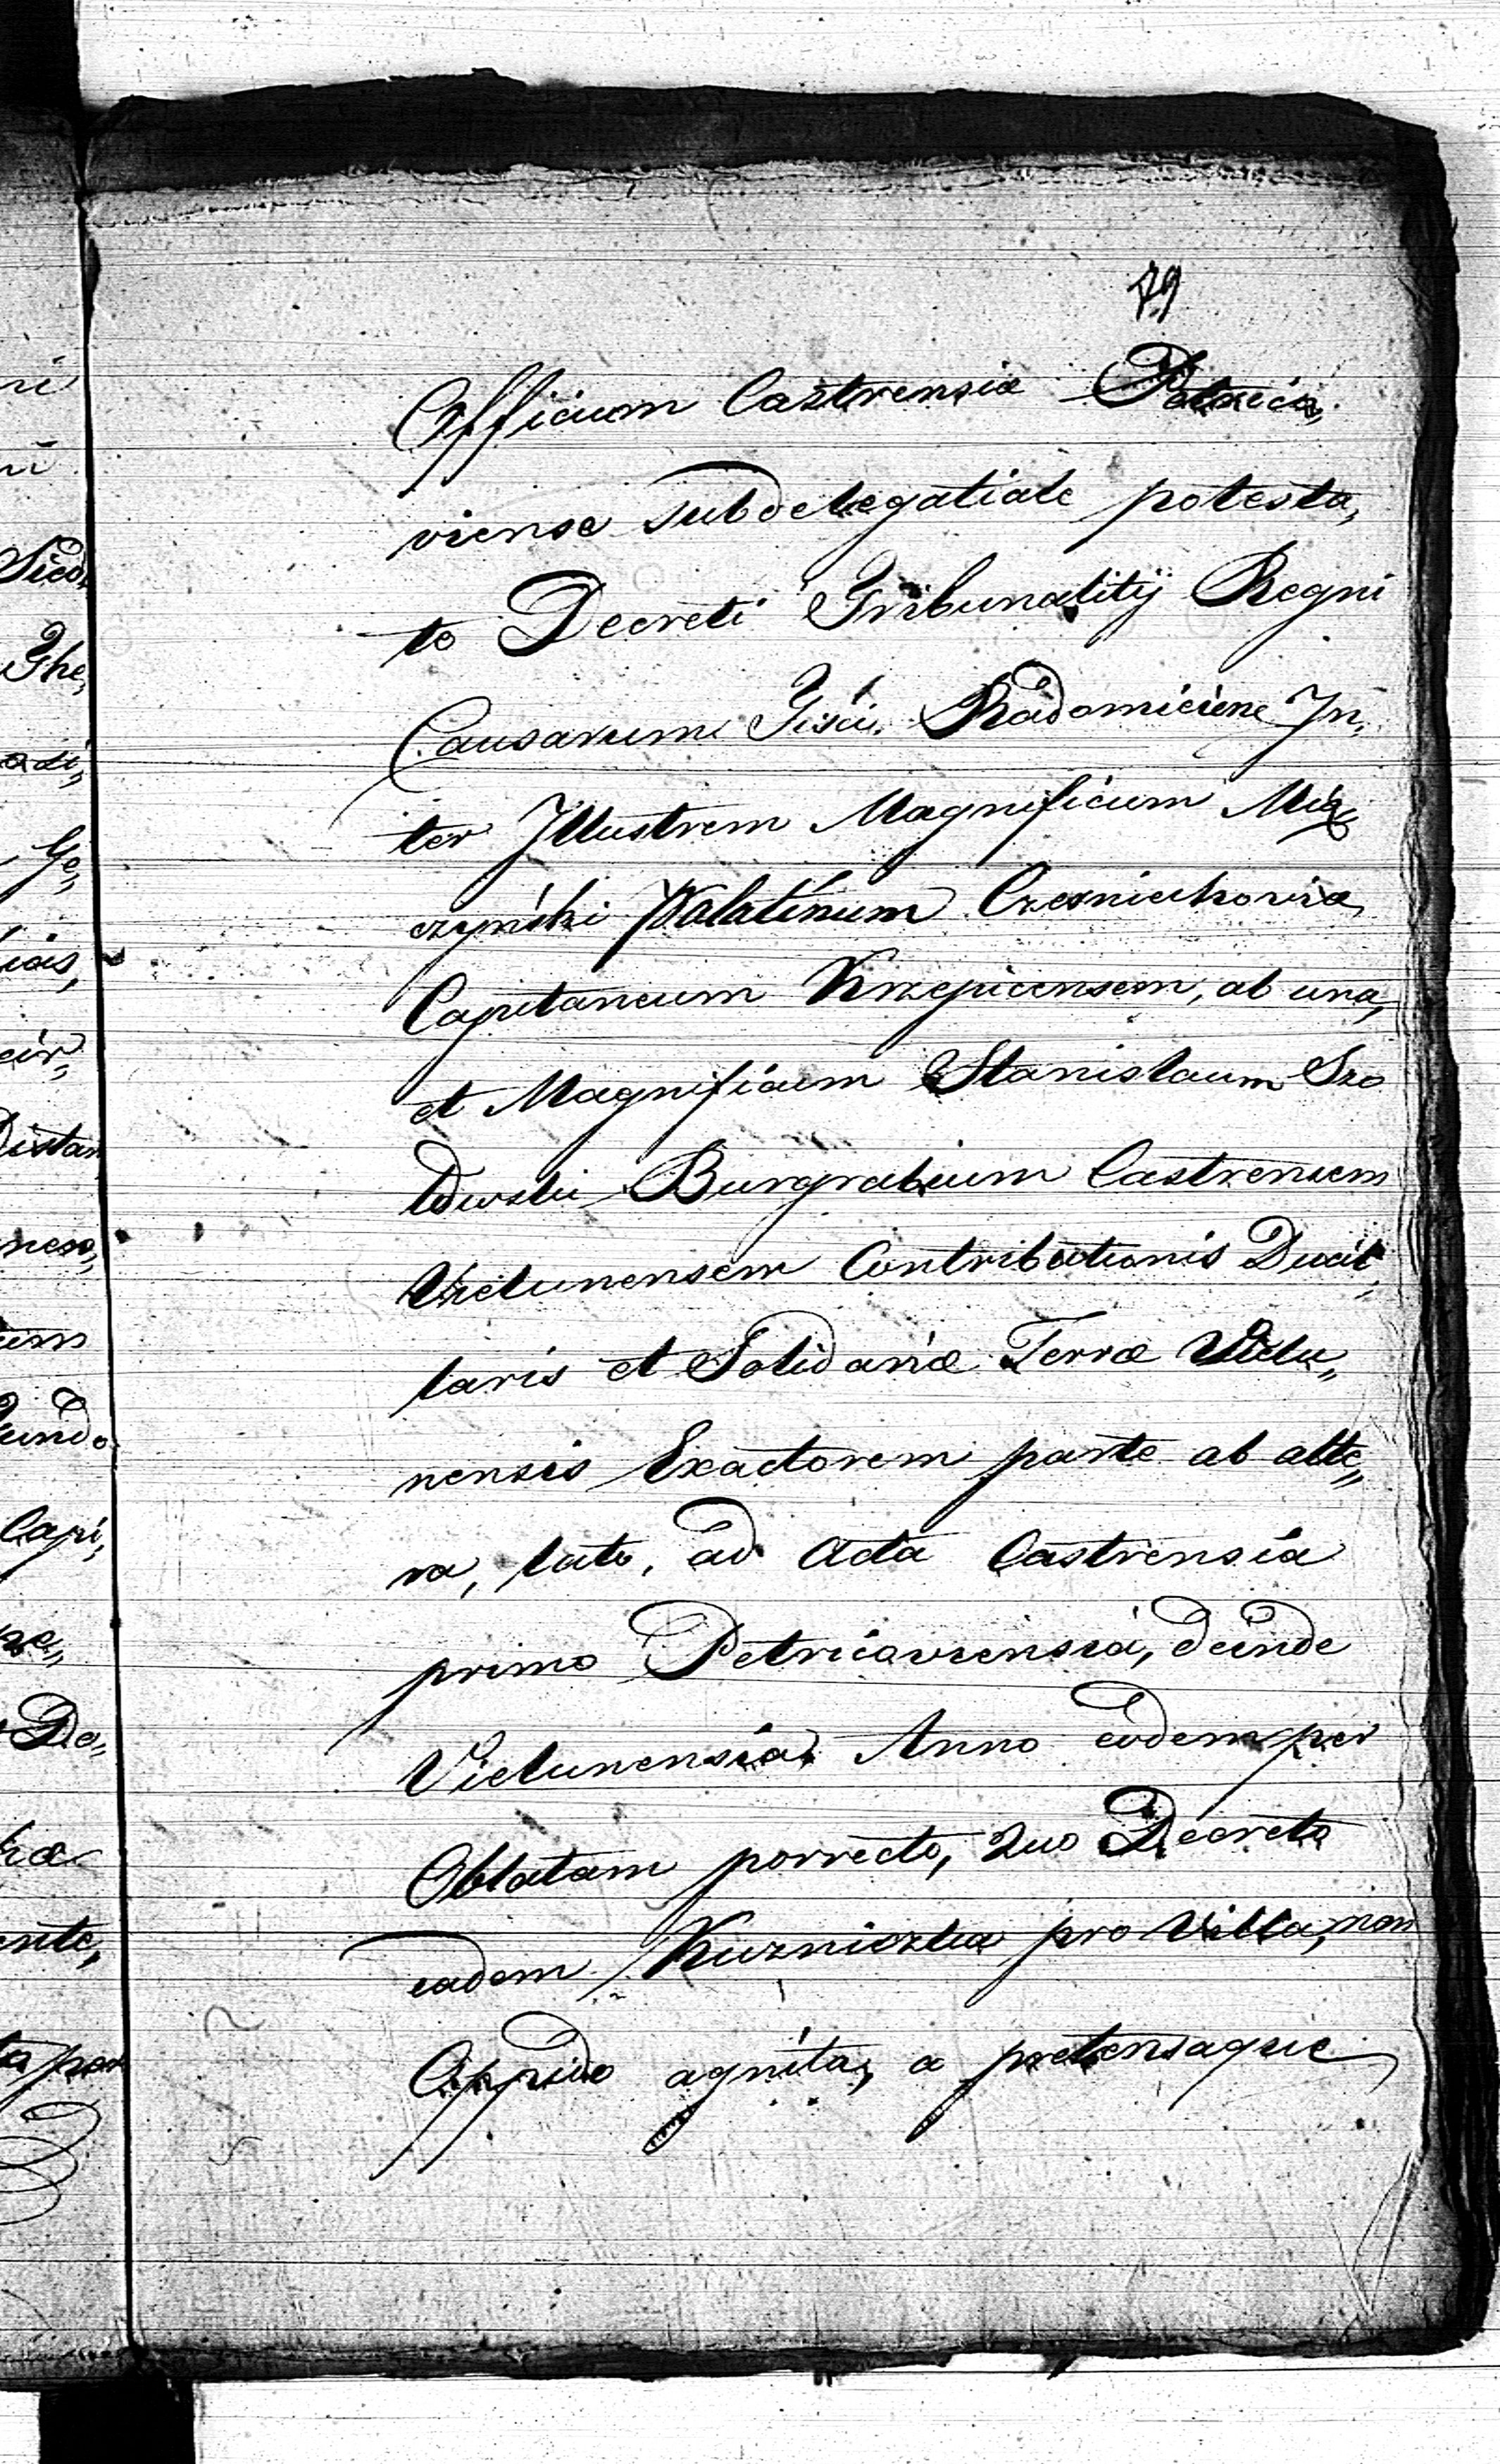 79
Officium Castrensia Petrica,
viense subdelegatiale potesta,
to Decreti Tribunalitij Regni
Causarum Fisci Radomiciene In,
ter Illustrem Magnificum Mią,
czyński Palatinum Czerniechoviae
Capitaneum Krzepicensem, ab una,
et Magnificum Stanislaum Szo
Burgrabium Castrensem
Vielunensem Contributionis Ducil,
laris et Solidariæ Terræ Vielu,,
nensis Exactorem parte ab alte,,
ra, lato, ad Acta Castrensia
primo Petricoviensia, deinde
Vielunensia Anno eodem per
Oblatam porrecto, quo Decreto
eadem Kuzniczka pro Villa, non
Oppido agnita, a pretensaque
ni
ni
Sied,
The,
adi,,
Ge,,
liais,
cir,,
Distan
neso,
um
undo
Capi,
ze,,
Do,,
ræ
ente,
ta per